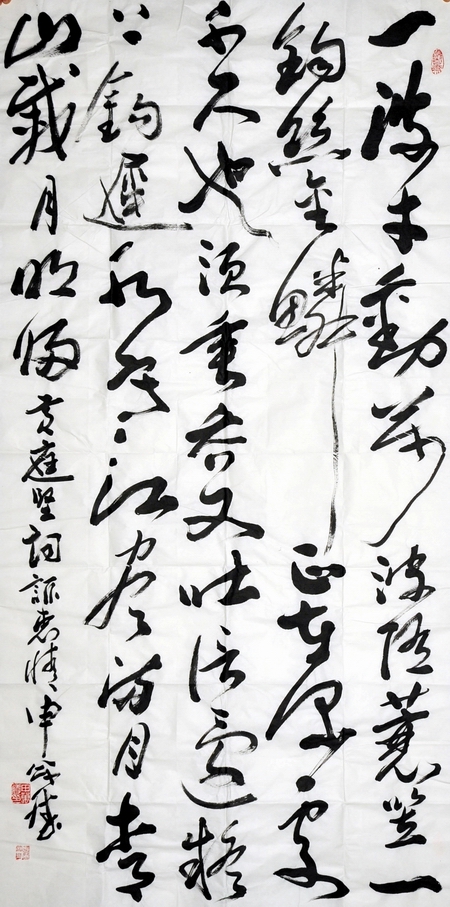 一波才動萬波隨蓑笠一
鈎絲金鱗正在深處
千尺也須垂吞又吐信還疑
上鈎遲水寒江靜滿目青
山載月明歸 黃庭堅詞訴衷情 申